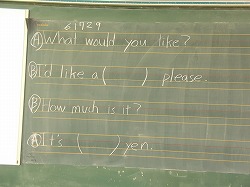 61929
Ⓐ What would you like?
Ⓑ I'd like a ( ) please.
Ⓑ How much is it?
Ⓐ It's ( ) yen.